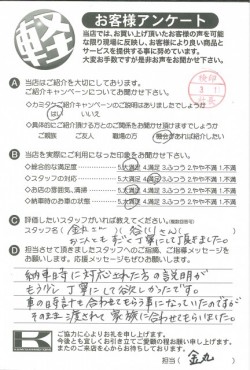 軽
お客様アンケート
当店では、お買い上げ頂いたお客様の声を可能
な限り現場に反映し、お客様により良い商品と
サービスを提供する事に努めています。
大変お手数ですが是非お声をお聞かせ下さい。
A 当店はご紹介を大切にしております。
ご紹介キャンペーンについてお聞かせ下さい。
◇カミタケご紹介キャンペーンのご説明はありましたでしょうか
はい いいえ
◇具体的にご紹介頂ける方とのご関係をお聞かせ頂けますでしょうか
ご親族 ご友人 職場の方 機会があれば紹介したい
B 当店を実際にご利用になった印象をお聞かせ下さい。
◇総合的な満足 5.大満足 4.満足 3.ふつう 2.やや不満 1.不満
◇スタッフの対応 5.大満足 4.満足 3.ふつう 2.やや不満 1.不満
◇お店の雰囲気、清掃 5.大満足 4.満足 3.ふつう 2.やや不満 1.不満
◇納車時のお車の状態 5.大満足 4.満足 3.ふつう 2.やや不満 1.不満
C 評価したいスタッフがいれば教えてください。(複数回答可)
スタッフ名( 金丸さん )( 谷川さん )
とても丁寧にして頂きました。
D 担当させて頂きましたスタッフへのご指摘、ご指導メッセージを
お願いします。応援メッセージもぜひお願いします。
納車時に対応された方の説明が
もう少し丁寧にして欲しかったです。
車の時計も合わせてもらう事になっていたのですが
そのまま渡されて家族に合わせてもらいました。
ご協力に心よりお礼を申し上げます。
今後とも宜しくお引き立てご愛顧の程お願い申し上げます。
またのご来店を心よりお待ちしております。
担当( 金丸 )